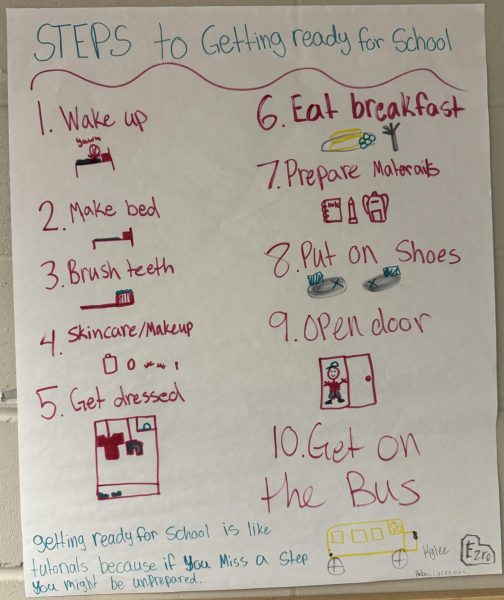 STEPS to Getting ready for School
1. Wake up
yawn
2. Make bed
3. Brush teeth
4. Skincare/Makeup
5. Get dressed
6. Eat breakfast
7. Prepare Materails
8. Put on Shoes
9. Open door
10. Get on
the Bus
getting ready for School is like
tutorials because if you Miss a Step
you might be unprepared.
Kylee
Ezra